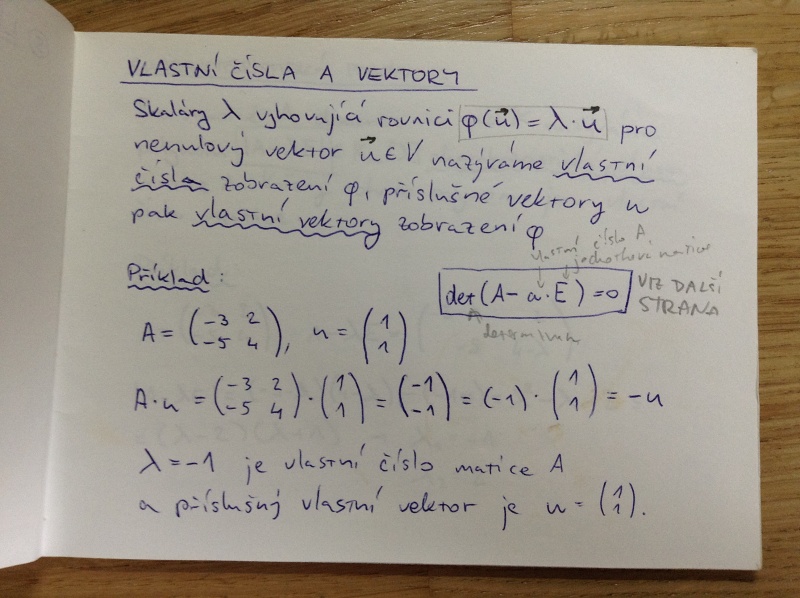 VLASTNÍ ČÍSLA A VEKTORY
Skaláry λ vyhovující rovnici φ(u⃗) = λ·u⃗ pro
nenulový vektor u⃗ ∈ V nazýváme vlastní
čísla zobrazení φ, příslušné vektory u
pak vlastní vektory zobrazení φ
vlastní číslo A
jednotková matice
Příklad:
det(A - a·E) = 0
VIZ DALŠÍ
STRANA
determinant
A = (-3 2; -5 4), u = (1; 1)
A·u = (-3 2; -5 4) · (1; 1) = (-1; -1) = (-1) · (1; 1) = -u
λ = -1 je vlastní číslo matice A
a příslušný vlastní vektor je u = (1; 1).